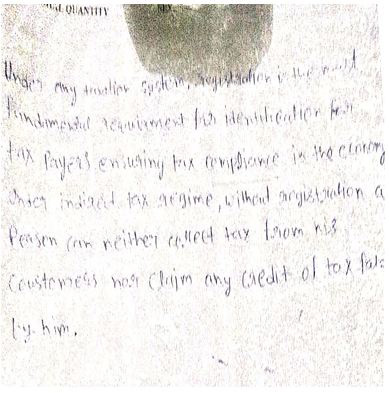 QUANTITY
Under any taxation system, registration is the most
Fundamental requirement for identification for
tax Payers ensuring tax compliance in the econom
Under indirect tax regime, without registration a
Person can neither collect tax from his
Coustemers nor Claim any credit of tax
by him.